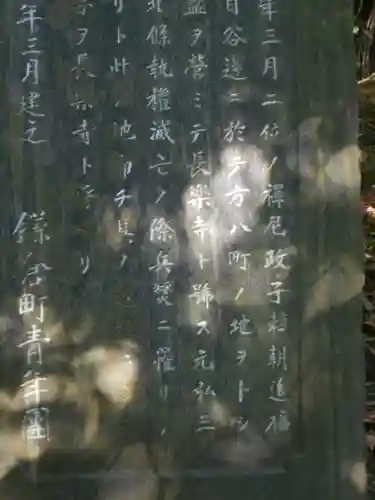 年三月二位ノ禪尼政子頼朝追福
目谷邊ニ於テ方八町ノ地ヲトシ
藍ヲ營ミテ長樂寺ト號ス元弘三
北條執權滅亡ノ際兵燹ニ罹リ
リト此ノ地即チ其ノ
字ヲ長樂寺ト リ
年三月建之 鎌倉町青年團